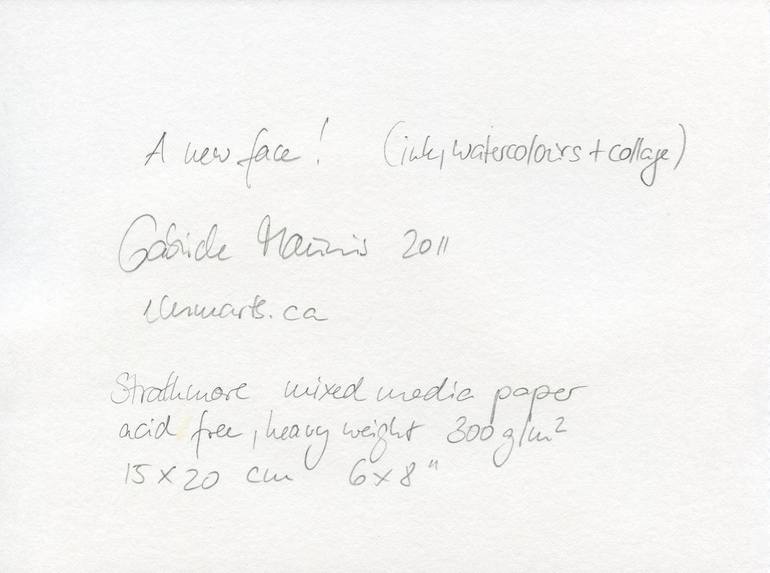 A new face! (ink, watercolours + collage)
Gabriele 2011
Strathmore mixed media paper
acid free, heavy weight 300 g/m²
15 x 20 cm 6 x 8"